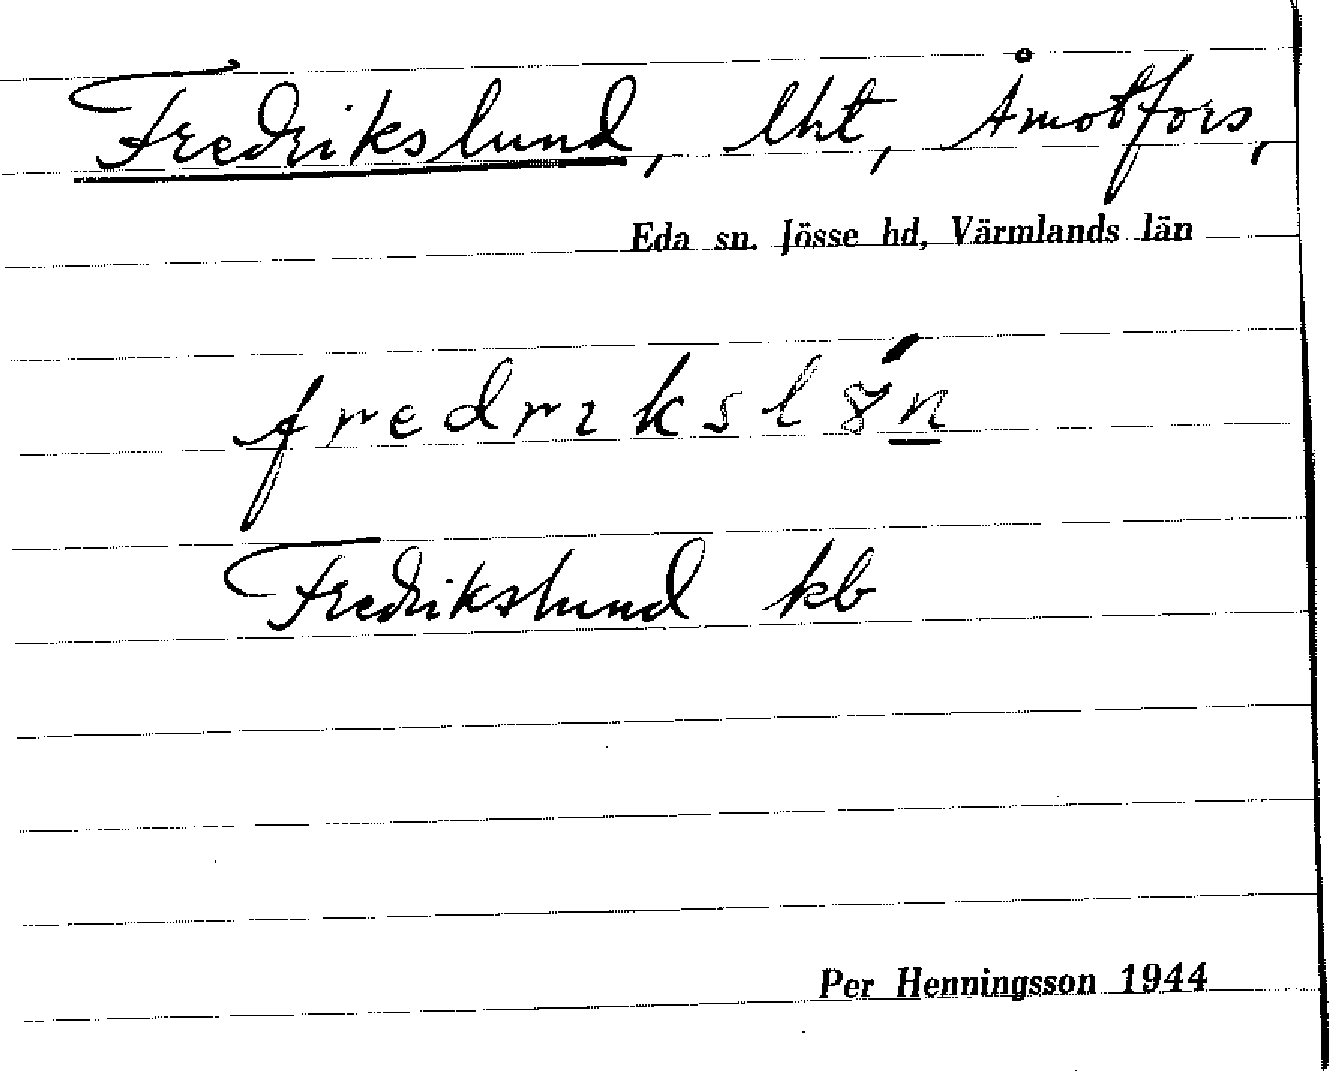 Fredrikslund, lht, Åmotfors,
Eda sn. Jösse hd, Värmlands län
fredrɩkslȣ́n̲
Fredrikslund kb
Per Henningsson 1944